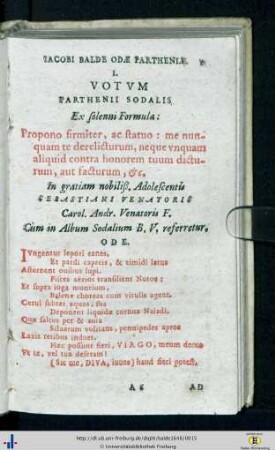 IACOBI BALDE ODÆ PARTHENIÆ. 9
I.
VOTVM
PARTHENII SODALIS,
Ex solenni Formula:
Propono firmiter, ac statuo: me nun-
quam te derelicturum, neque vnquam
aliquid contra honorem tuum dictu-
rum, aut facturum, &c.
In gratiam nobiliß. Adolescentis
SEBASTIANI VENATORIS
Carol. Andr. Venatorii F.
Cùm in Album Sodalium B. V. referretur,
ODE.
IVngentur lepori canes,
Et pardi capreis, & timidi latus
Affricent ouibus lupi.
Pisces aërios transilient Notos:
Et supra iuga montium,
Balenæ choreas cum vitulis agent.
Cerui
Deponent liquidæ cornua Naiadi.
Quæ saltus per &
volitans, pennipedes apros
Laxis retibus induet.
Hæc possint fieri, VIRGO, meum decus
Vt te, vel tua deseram!
(Sic me, DIVA, iuues) haud fieri potest.
A 5 AD
http://dl.ub.uni-freiburg.de/diglit/balde1648/0015
© Universitätsbibliothek Freiburg